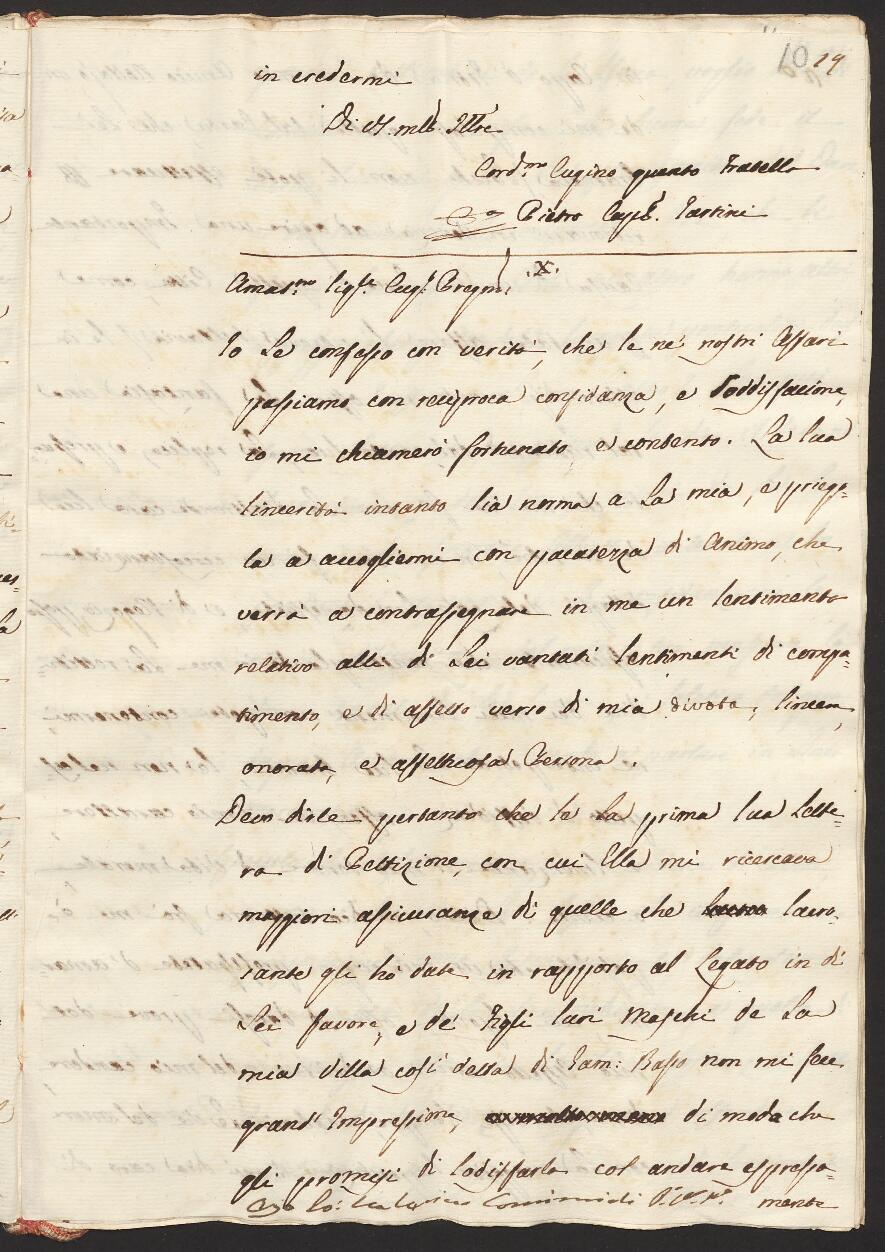 10 19
in credermi
Di V. mlt. Illre
Cord.mo Cugino quanto Fratello
Pietro Tartini
Amat.mo Sig.re Cug.o Pregmo .X.
Io Le confesso con verità, che se ne' nostri Affari
passiamo con reciproca confidanza, e Soddisfacione,
io mi chiamerò fortunato, e contento. La Sua
Sincerità intanto Sia norma a La mia, e priego=
la a accogliermi con pacatezza di Animo, che
verrà a contrasegnare in me un Sentimento
relativo alli di Lei vantati Sentimenti di compa=
timento, e di affetto verso di mia divota, Sincera,
onorata, e affettuosa Persona.
Devo dirle pertanto che se La prima Sua Lette=
ra di Pettizione, con cui Ella mi ricercava
maggiori assicuranze di quelle che Sacro=
sante gli hò date in rapporto al Legato in di
Lei favore, e de' Figli Suoi Maschi de La
mia Villa così detta di Fam: Basso non mi fece
grand' Impressione, di modo che
gli promisi di Sodisfarla col andare espressa=
mente